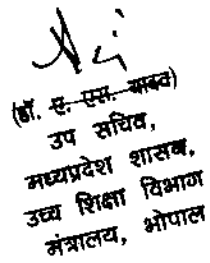 (डॉ. ए. एस. यादव)
उप सचिव,
मध्यप्रदेश शासन,
उच्च शिक्षा विभाग
मंत्रालय, भोपाल